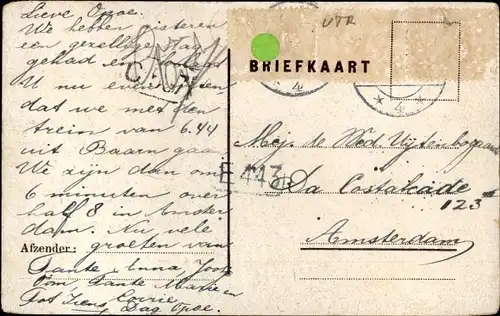 Lieve Opoe.
We hebben gisteren
een gezellige dag
gehad en
U nu even
dat we met den
trein van 6.44
uit Baarn gaan
We zijn dan om
6 minuten over
half 8 in Amster
dam. Nu vele
Afzender: groeten van
Tante Anna Joop
Oom Tante Marie en
Corrie
Tot Ziens, Dag Opoe.
UTR
BRIEFKAART
4
4
E 443
Mej. de Wed. Uijtenbogaard
Da Costakade
123
Amsterdam